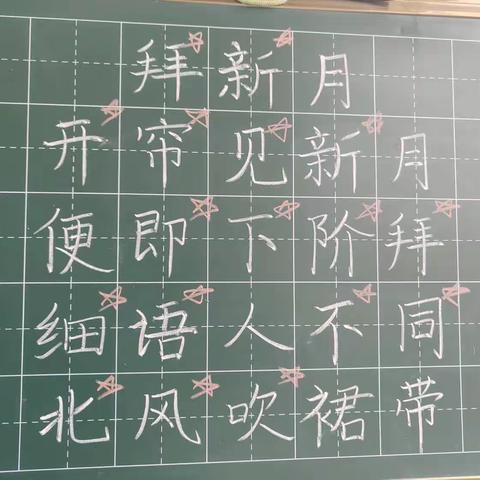 拜新月
开帘见新月
便即下阶拜
细语人不同
北风吹裙带